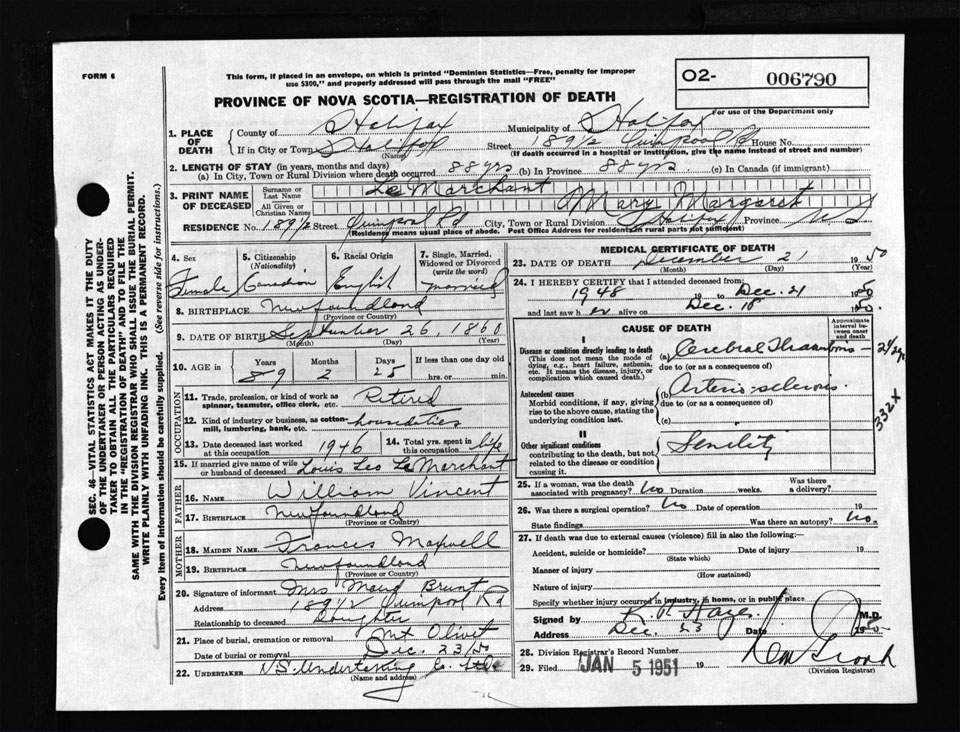 FORM 6
This form, if placed in an envelope, on which is printed "Dominion Statistics—Free, penalty for improper
use $300," and properly addressed will pass through the mail "FREE"
O2- 006790
For use of the Department only
PROVINCE OF NOVA SCOTIA—REGISTRATION OF DEATH
1. PLACE OF DEATH
County of Halifax Municipality of Halifax
If in City or Town Halifax Street 189½ Quinpool Rd House No.
(Name) (If death occurred in a hospital or institution, give the name instead of street and number)
2. LENGTH OF STAY (in years, months and days)
(a) In City, Town or Rural Division where death occurred 88 yrs (b) In Province 88 yrs. (c) In Canada (if immigrant)
3. PRINT NAME OF DECEASED
Surname or Last Name Le Marchant
All Given or Christian Names Mary Margaret
RESIDENCE No. 189½ Street Quinpool Rd City, Town or Rural Division Halifax Province N S
(Residence means usual place of abode. Post Office Address for residents in rural parts not sufficient)
4. Sex Female
5. Citizenship (Nationality) Canadian
6. Racial Origin English
7. Single, Married, Widowed or Divorced (write the word) married
8. BIRTHPLACE Newfoundland
(Province or Country)
9. DATE OF BIRTH September 26, 1860
(Month) (Day) (Year)
10. AGE in Years Months Days If less than one day old
89 2 25 hrs. or min.
OCCUPATION
11. Trade, profession, or kind of work as spinner, teamster, office clerk, etc. Retired
12. Kind of industry or business, as cotton-mill, lumbering, bank, etc. household duties
13. Date deceased last worked at this occupation 1946
14. Total yrs. spent in this occupation life
15. If married give name of wife or husband of deceased Louis Leo Le Marchant
FATHER
16. NAME William Vincent
17. BIRTHPLACE Newfoundland
(Province or Country)
MOTHER
18. MAIDEN NAME Frances Maxwell
19. BIRTHPLACE Newfoundland
(Province or Country)
20. Signature of informant Mrs Maud Brunt
Address 189½ Quinpool Rd
Relationship to deceased Daughter
21. Place of burial, cremation or removal Mt Olivet
Date of burial or removal Dec. 23/50
22. UNDERTAKER N.S. Undertaking Co. Ltd.
(Name and address)
MEDICAL CERTIFICATE OF DEATH
23. DATE OF DEATH December 21 1950
(Month) (Day) (Year)
24. I HEREBY CERTIFY that I attended deceased from:
1948 19 to Dec. 21 1950
and last saw her alive on Dec. 18 1950.
CAUSE OF DEATH
Approximate interval between onset and death
I
Disease or condition directly leading to death
(This does not mean the mode of dying, e.g., heart failure, asthenia, etc. It means the disease, injury, or complication which caused death.)
(a) Cerebral Thrombosis — 2½ yrs
due to (or as a consequence of)
Antecedent causes
Morbid conditions, if any, giving rise to the above cause, stating the underlying condition last.
(b) Arterio-sclerosis.
due to (or as a consequence of)
(c)
332X
II
Other significant conditions
contributing to the death, but not related to the disease or condition causing it.
Senility
25. If a woman, was the death associated with pregnancy? No Duration weeks. Was there a delivery?
26. Was there a surgical operation? No Date of operation 19
State findings Was there an autopsy? No.
27. If death was due to external causes (violence) fill in also the following:—
Accident, suicide or homicide? Date of injury 19
(State which)
Manner of injury
(How sustained)
Nature of injury
Specify whether injury occurred in industry, in home, or in public place
Signed by M.D.
Address Dec. 23 Date 1950.
28. Division Registrar's Record Number
29. Filed JAN 5 1951 19
(Division Registrar)
SEC. 46—VITAL STATISTICS ACT MAKES IT THE DUTY
OF THE UNDERTAKER OR PERSON ACTING AS UNDER-
TAKER TO OBTAIN ALL THE PARTICULARS REQUIRED
IN THE "REGISTRATION OF DEATH" AND TO FILE THE
SAME WITH THE DIVISION REGISTRAR WHO SHALL ISSUE THE BURIAL PERMIT.
WRITE PLAINLY WITH UNFADING INK. THIS IS A PERMANENT RECORD.
Every item of information should be carefully supplied. (See reverse side for instructions.)